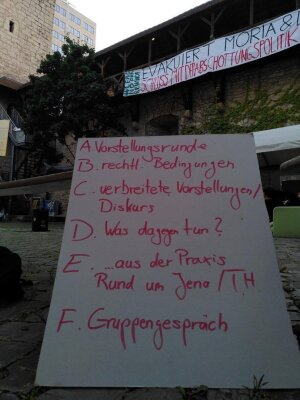 EVAKUIERT MORIA &
SCHLUSS MIT DER ABSCHOTTUNGSPOLITIK
A. Vorstellungsrunde
B. rechtl. Bedingungen
C. verbreitete Vorstellungen/
Diskurs
D. Was dagegen tun?
E. ...aus der Praxis
Rund um Jena/TH
F. Gruppengespräch